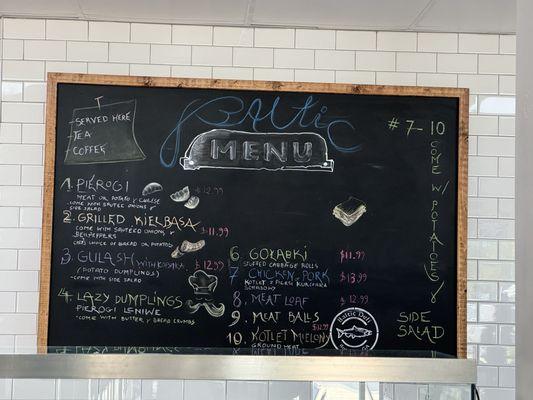 SERVED HERE
TEA
COFFEE
Baltic
MENU
# 7-10
COME W/ POTATOES
SIDE
SALAD
1. PIÉROGI $12.99
MEAT OR POTATO & CHEESE
- COME WITH SAUTEÉ ONIONS &
SIDE SALAD
2. GRILLED KIEŁBASA
COME WITH SAUTEED ONIONS & $11.99
BELLPEPPERS
CHEFS CHOICE OF BREAD OR POTATO
3. GULASH WITH KOPYTKA $12.99
(POTATO DUMPLINGS)
- COME WITH SIDE SALAD
4. LAZY DUMPLINGS
PIEROGI LENIWE
- COME WITH BUTTER & BREAD CRUMBS
6 GOŁĄBKI $11.99
STUFFED CABBAGE ROLLS
7 CHICKEN, PORK $13.99
KOTLET Z PIERSI KURCZAKA
SCHABOWY
8. MEAT LOAF $12.99
9. MEAT BALLS
10. KOTLET MIELONY $12.99
GROUND MEAT
Baltic Deli